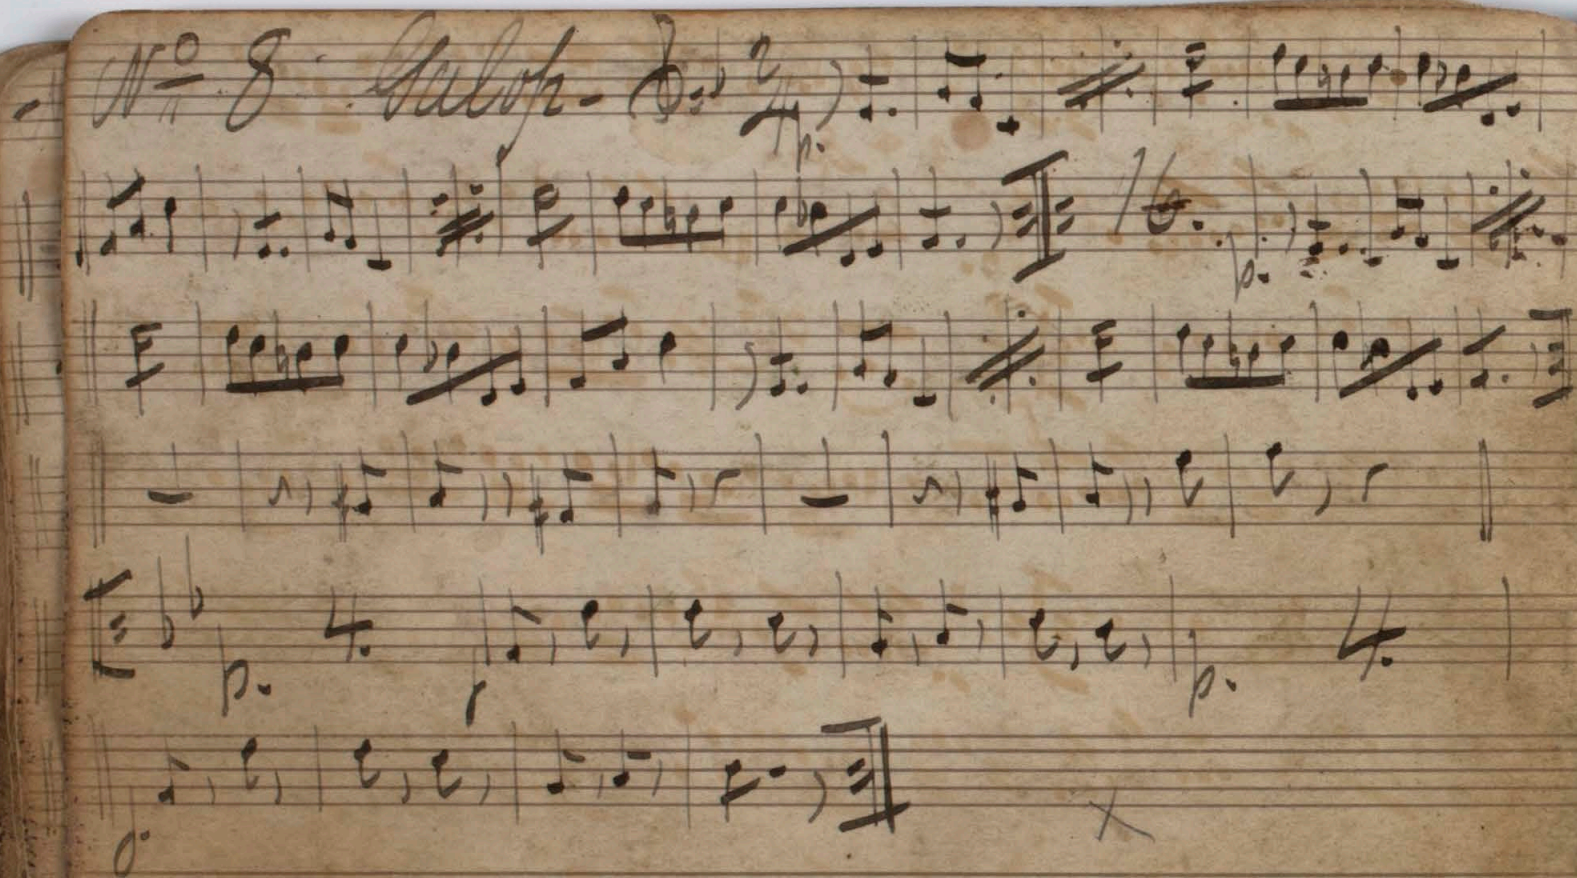 Nº 8 Galop. 2/4
p.
16. p.
p. 4. p. 4.